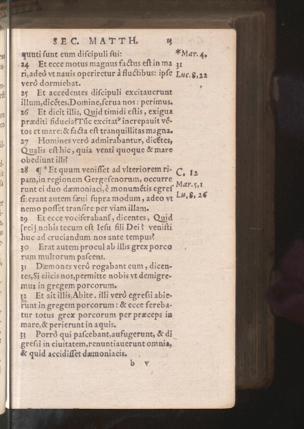 SEC. MATTH.
quuti sunt eum discipuli sui:
24 Et ecce motus magnus factus est in ma
ri, adeò vt nauis operiretur à fluctibus: ipse
verò dormiebat.
25 Et accedentes discipuli excitauerunt
illum, dicētes, Domine, serua nos: perimus.
26 Et dicit illis, Quid timidi estis, exigua
præditi fiducia? Tūc excitat⁹ increpauit vē-
tos et mare: & facta est tranquillitas magna.
27 Homines verò admirabantur, dicētes,
Qualis est hic, quia venti quoque & mare
obediunt illi?
28 ¶ * Et quum venisset ad vlteriorem ri-
pam, in regionem Gergesenorum, occurre
runt ei duo dæmoniaci, è monumētis egres
si: erant autem sæui supra modum, adeo vt
nemo posset transire per viam illam.
29 Et ecce vociferabanť, dicentes, Quid
[rei] nobis tecum est Iesu fili Dei? venisti
huc ad cruciandum nos ante tempus?
30 Erat autem procul ab illis grex porco
rum multorum pascens.
31 Dæmones verò rogabant eum, dicen-
tes, Si eiicis nos, permitte nobis vt demigre-
mus in gregem porcorum.
32 Et ait illis, Abite. illi verò egressi abie-
runt in gregem porcorum: & ecce fereba-
tur totus grex porcorum per præceps in
mare, & perierunt in aquis.
33 Porrò qui pascebant, aufugerunt, & di
gressi in ciuitatem, renuntiauerunt omnia,
& quid accidisset dæmoniacis.
b v
*Mar. 4,
31
Luc. 8, 22
C. 12
Mar. 5, 1
Lu. 8, 26